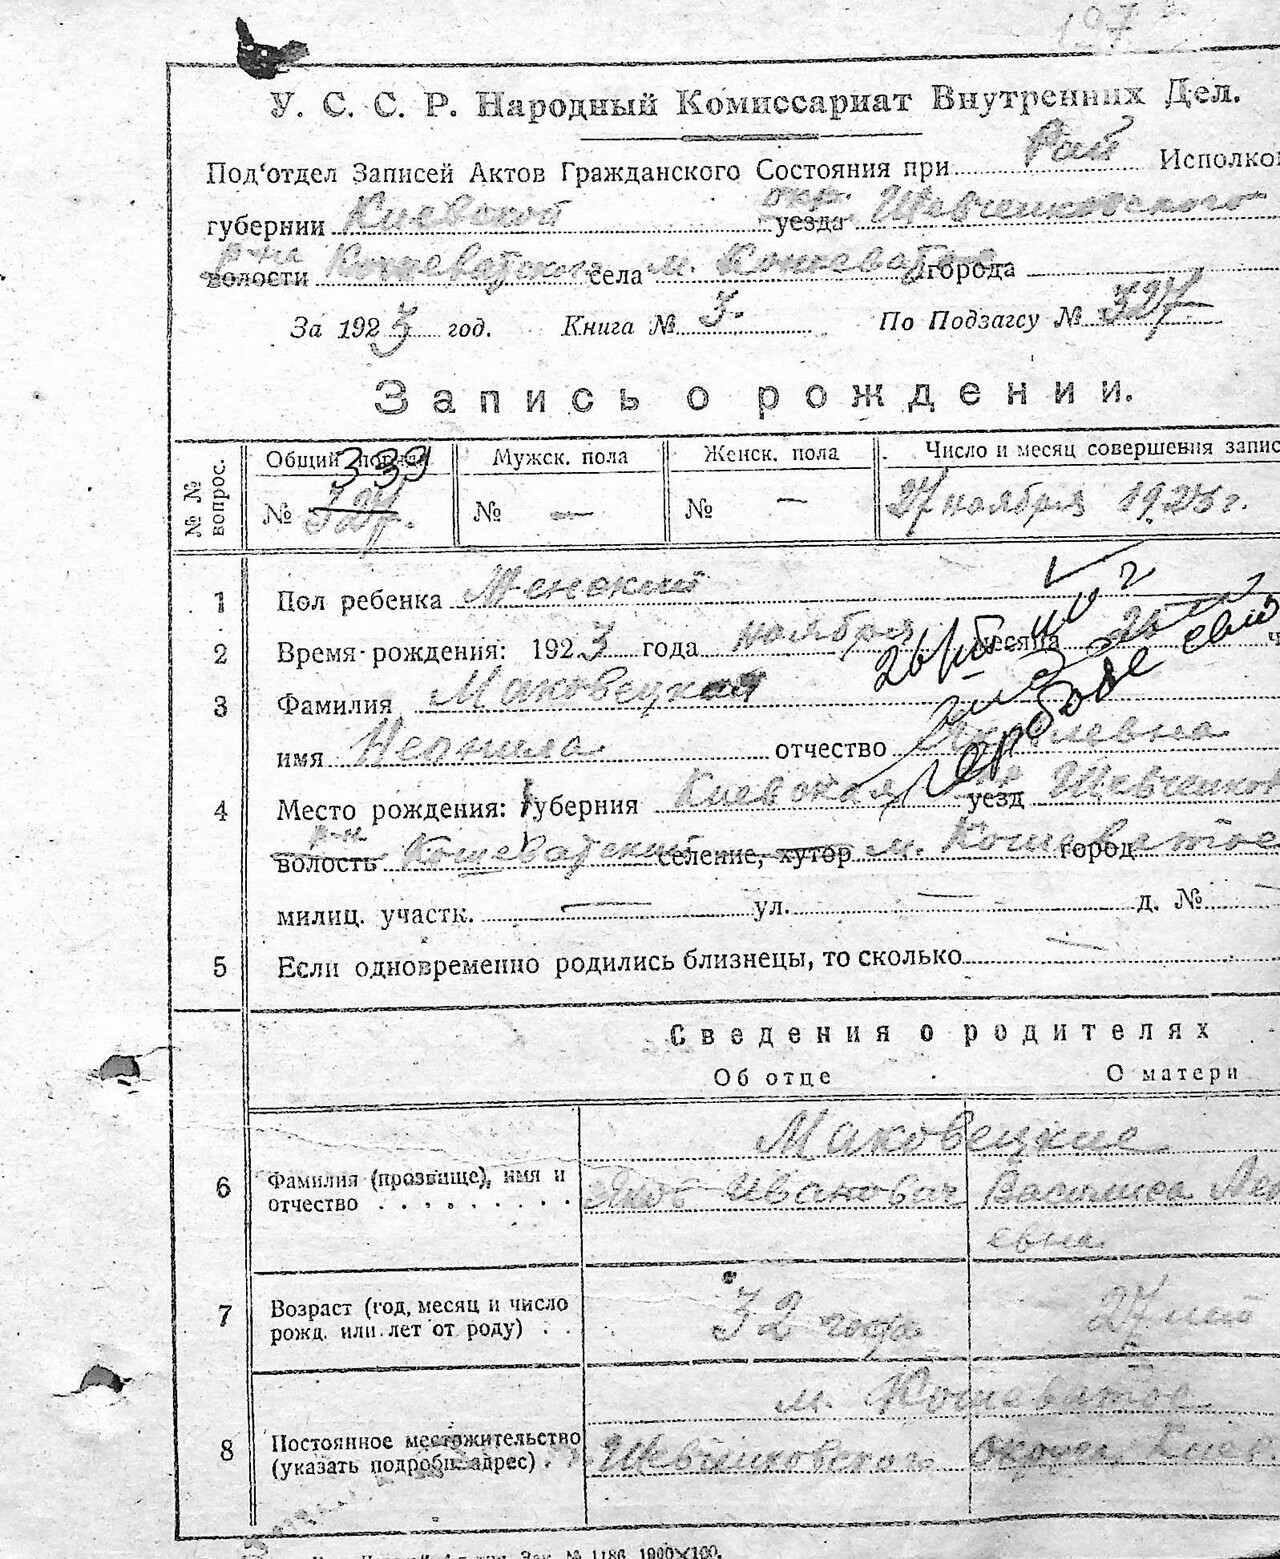 У. С. С. Р. Народный Комиссариат Внутренних Дел.
Под'отдел Записей Актов Гражданского Состояния при Рай Исполко
губернии Киевской окр. уезда Шевченковского
р-на волости Кошеватского села м. Кошеватое города
За 1923 год. Книга № 3. По Подзагсу № 327
Запись о рождении.
№ № вопрос.
Общий 339 Мужск. пола Женск. пола Число и месяц совершения запис
№ 327. № — № — 27 ноября 1923 г.
1 Пол ребенка Женский
2 Время рождения: 1923 года ноября месяца 26
3 Фамилия Маковецкая
имя Неонила отчество Яковлевна
4 Место рождения: губерния Киевская окр уезд Шевченков
р-н волость Кошеватский селение, хутор м. Кошеватое город
милиц. участк. — ул. — д. № —
5 Если одновременно родились близнецы, то сколько —
Сведения о родителях
Об отце О матери
Маковецкие
6 Фамилия (прозвище), имя и отчество Яков Иванович Василиса
евна
7 Возраст (год, месяц и число рожд. или лет от роду) 32 года 27 лет
м. Кошеватое
8 Постоянное местожительство (указать подробн. адрес) Шевченковского округа Киев.
Зак. № 1186 1000×100.